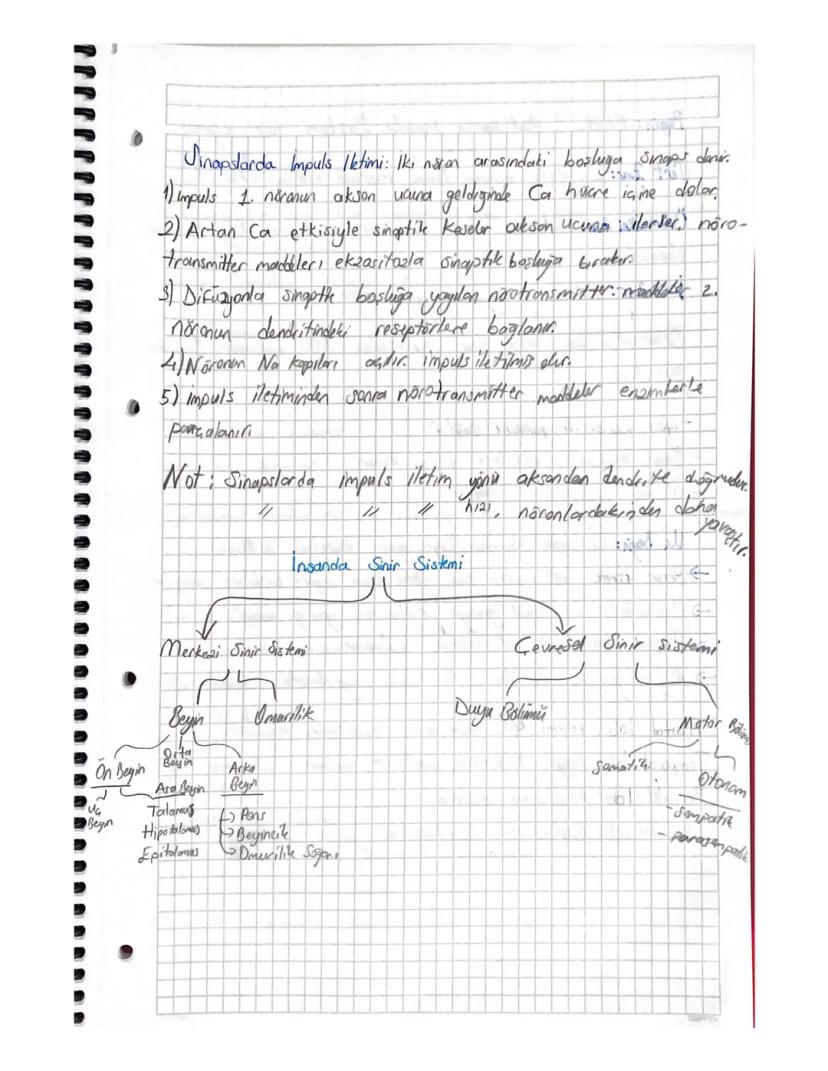 Sinapslarda İmpuls İletimi: İki nöron arasındaki boşluğa sinaps denir.
1) impuls 1. nöronun akson ucuna geldiğinde Ca hücre içine dolar.
2) Artan Ca etkisiyle sinaptik keseler akson ucuna ilerler, nöro-
transmitter maddeleri ekzositozla sinaptik boşluğa bırakır.
3) Difüzyonla sinaptik boşluğa yayılan nörotransmitter maddeler 2.
nöronun dendritindeki reseptörlere bağlanır.
4) Nöronun Na kapıları açılır. impuls iletilmiş olur.
5) impuls iletiminden sonra nörotransmitter maddeler enzimlerle
parçalanır.
Not: Sinapslarda impuls iletim yönü aksondan dendrite doğrudur.
" " " hızı, nöronlardakinden daha
yavaştır.
İnsanda Sinir Sistemi
Merkezi Sinir Sistemi Çevresel Sinir Sistemi
Beyin Omurilik Duyu Bölümü Motor Bölümü
Ön Beyin Orta Beyin Arka Beyin Somatik Otonom
Uç Beyin Ara Beyin
Talamus Pons - Sempatik
Hipotalamus Beyincik - parasempatik
Epitalamus Omurilik Soğanı